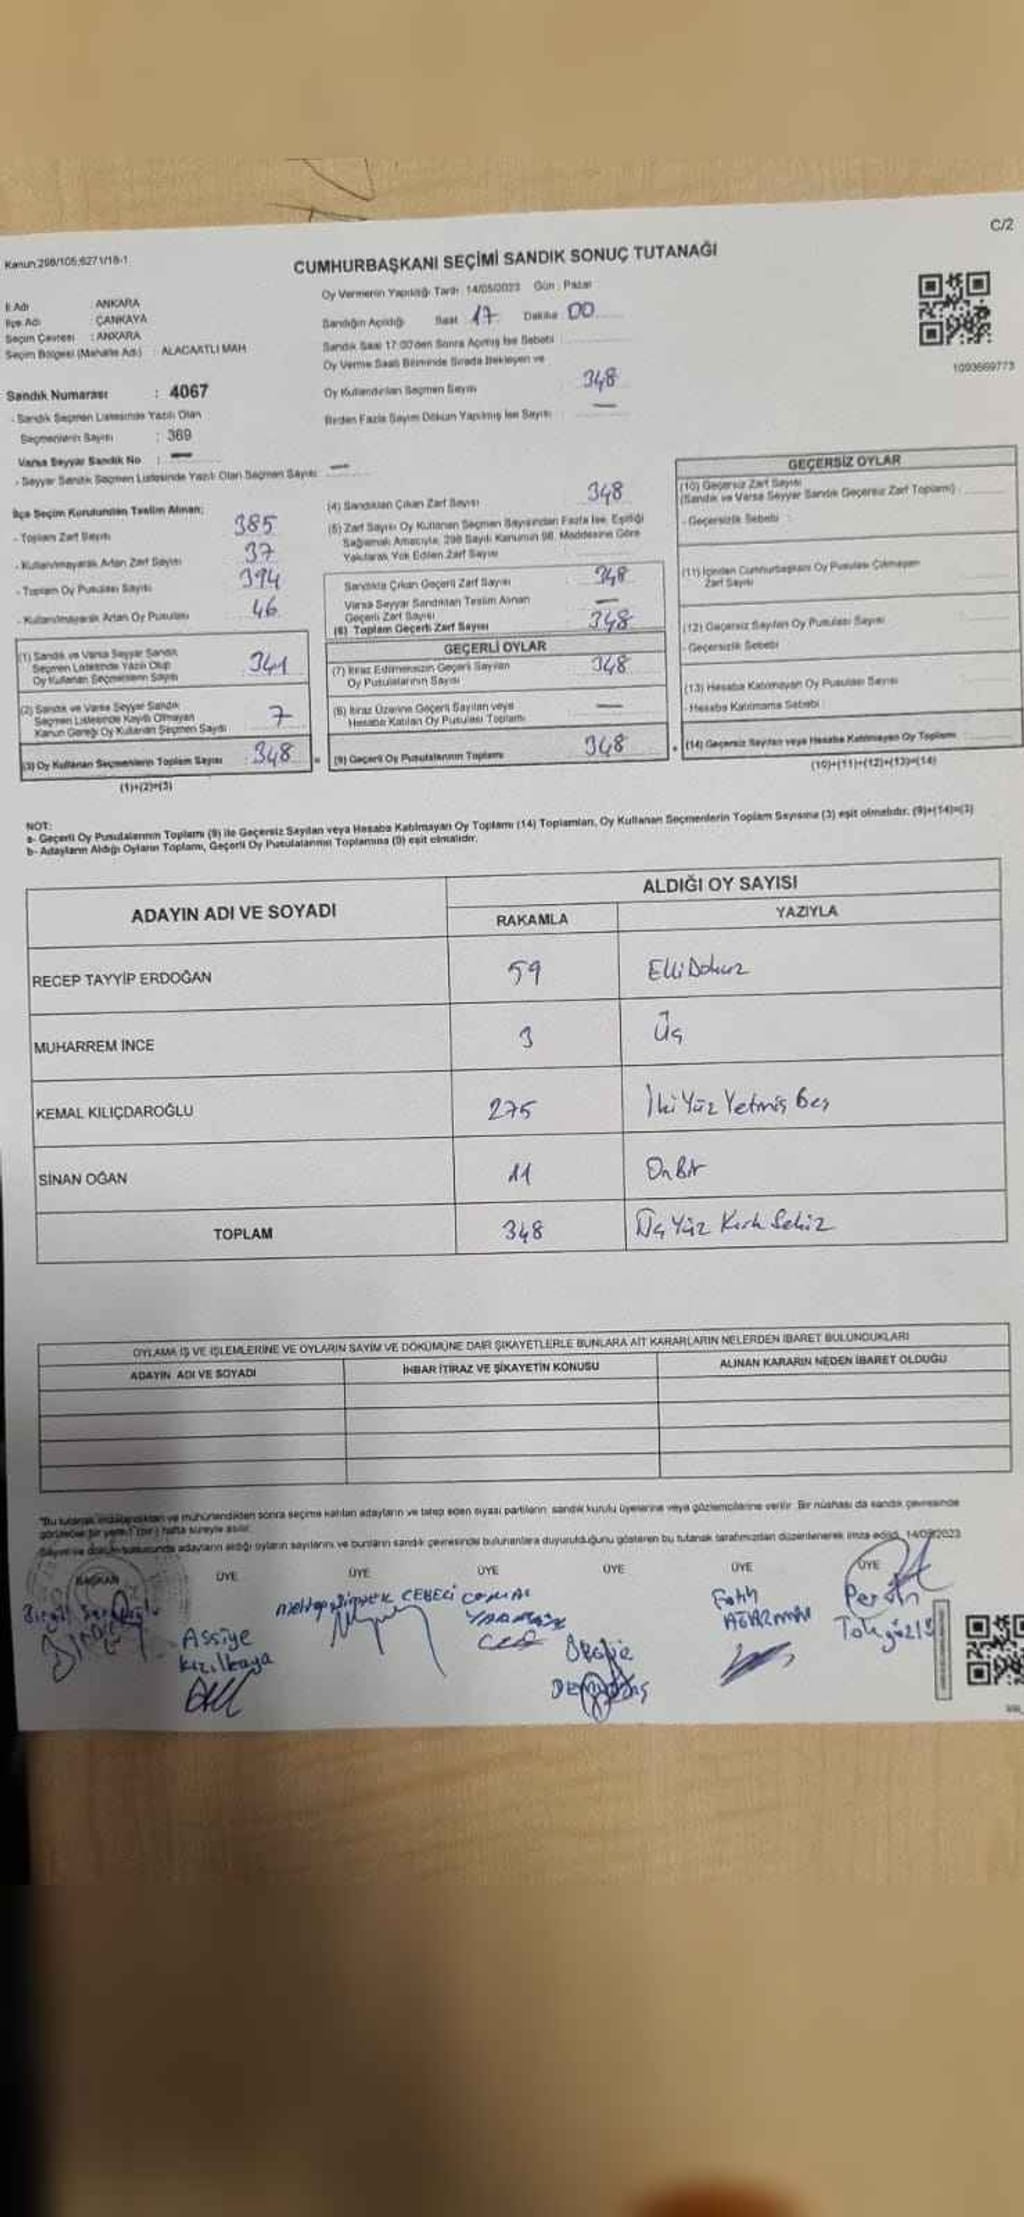 C/2
Kanun:298/105,6271/18-1
CUMHURBAŞKANI SEÇİMİ SANDIK SONUÇ TUTANAĞI
İl Adı : ANKARA
İlçe Adı : ÇANKAYA
Seçim Çevresi : ANKARA
Seçim Bölgesi (Mahalle Adı) : ALACAATLI MAH.
Sandık Numarası : 4067
- Sandık Seçmen Listesinde Yazılı Olan
Seçmenlerin Sayısı : 369
Varsa Seyyar Sandık No : —
- Seyyar Sandık Seçmen Listesinde Yazılı Olan Seçmen Sayısı —
Oy Vermenin Yapıldığı Tarih 14/05/2023 Gün : Pazar
Sandığın Açıldığı Saat 17 Dakika 00
Sandık Saat 17:00'den Sonra Açılmış İse Sebebi :
Oy Verme Saati Bitiminde Sırada Bekleyen ve
Oy Kullandırılan Seçmen Sayısı 348
Birden Fazla Sayım Döküm Yapılmış İse Sayısı —
1093669773
İlçe Seçim Kurulundan Teslim Alınan;
- Toplam Zarf Sayısı 385
- Kullanılmayarak Artan Zarf Sayısı 37
- Toplam Oy Pusulası Sayısı 394
- Kullanılmayarak Artan Oy Pusulası 46
(1) Sandık ve Varsa Seyyar Sandık
Seçmen Listesinde Yazılı Olup
Oy Kullanan Seçmenlerin Sayısı 341
(2) Sandık ve Varsa Seyyar Sandık
Seçmen Listesinde Kayıtlı Olmayan
Kanun Gereği Oy Kullanan Seçmen Sayısı 7
(3) Oy Kullanan Seçmenlerin Toplam Sayısı 348
(1)+(2)=(3)
(4) Sandıktan Çıkan Zarf Sayısı 348
(5) Zarf Sayısı Oy Kullanan Seçmen Sayısından Fazla İse, Eşitliği
Sağlamak Amacıyla, 298 Sayılı Kanunun 98. Maddesine Göre
Yakılarak Yok Edilen Zarf Sayısı
Sandıkta Çıkan Geçerli Zarf Sayısı 348
Varsa Seyyar Sandıktan Teslim Alınan
Geçerli Zarf Sayısı —
(6) Toplam Geçerli Zarf Sayısı 348
GEÇERLİ OYLAR
(7) İtiraz Edilmeksizin Geçerli Sayılan
Oy Pusulalarının Sayısı 348
(8) İtiraz Üzerine Geçerli Sayılan veya
Hesaba Katılan Oy Pusulası Toplamı —
(9) Geçerli Oy Pusulalarının Toplamı 348
GEÇERSİZ OYLAR
(10) Geçersiz Zarf Sayısı
(Sandık ve Varsa Seyyar Sandık Geçersiz Zarf Toplamı)
- Geçersizlik Sebebi :
(11) İçinden Cumhurbaşkanı Oy Pusulası Çıkmayan
Zarf Sayısı
(12) Geçersiz Sayılan Oy Pusulası Sayısı
- Geçersizlik Sebebi
(13) Hesaba Katılmayan Oy Pusulası Sayısı
- Hesaba Katılmama Sebebi
(14) Geçersiz Sayılan veya Hesaba Katılmayan Oy Toplamı
(10)+(11)+(12)+(13)=(14)
NOT:
a- Geçerli Oy Pusulalarının Toplamı (9) ile Geçersiz Sayılan veya Hesaba Katılmayan Oy Toplamı (14) Toplamları, Oy Kullanan Seçmenlerin Toplam Sayısına (3) eşit olmalıdır. (9)+(14)=(3)
b- Adayların Aldığı Oyların Toplamı, Geçerli Oy Pusulalarının Toplamına (9) eşit olmalıdır.
ADAYIN ADI VE SOYADI
ALDIĞI OY SAYISI
RAKAMLA YAZIYLA
RECEP TAYYİP ERDOĞAN 59 Elli Dokuz
MUHARREM İNCE 3 Üç
KEMAL KILIÇDAROĞLU 275 İki Yüz Yetmiş Beş
SİNAN OĞAN 11 On Bir
TOPLAM 348 Üç Yüz Kırk Sekiz
OYLAMA İŞ VE İŞLEMLERİNE VE OYLARIN SAYIM VE DÖKÜMÜNE DAİR ŞİKAYETLERLE BUNLARA AİT KARARLARIN NELERDEN İBARET BULUNDUKLARI
ADAYIN ADI VE SOYADI İHBAR İTİRAZ VE ŞİKAYETİN KONUSU ALINAN KARARIN NEDEN İBARET OLDUĞU
"Bu tutanak imzalandıktan ve mühürlendikten sonra seçime katılan adayların ve talep eden siyasi partilerin sandık kurulu üyelerine veya gözlemcilerine verilir. Bir nüshası da sandık çevresinde
görülecek bir yere 1 (bir) hafta süreyle asılır.
Sayım ve döküm sonucunda adayların aldığı oyların sayılarını ve bunların sandık çevresinde bulunanlara duyurulduğunu gösteren bu tutanak tarafımızdan düzenlenerek imza edildi. 14/05/2023
BAŞKAN ÜYE ÜYE ÜYE ÜYE ÜYE ÜYE
Assiye
Kızılkaya
CEBECİ
Fatih
AĞARMAN